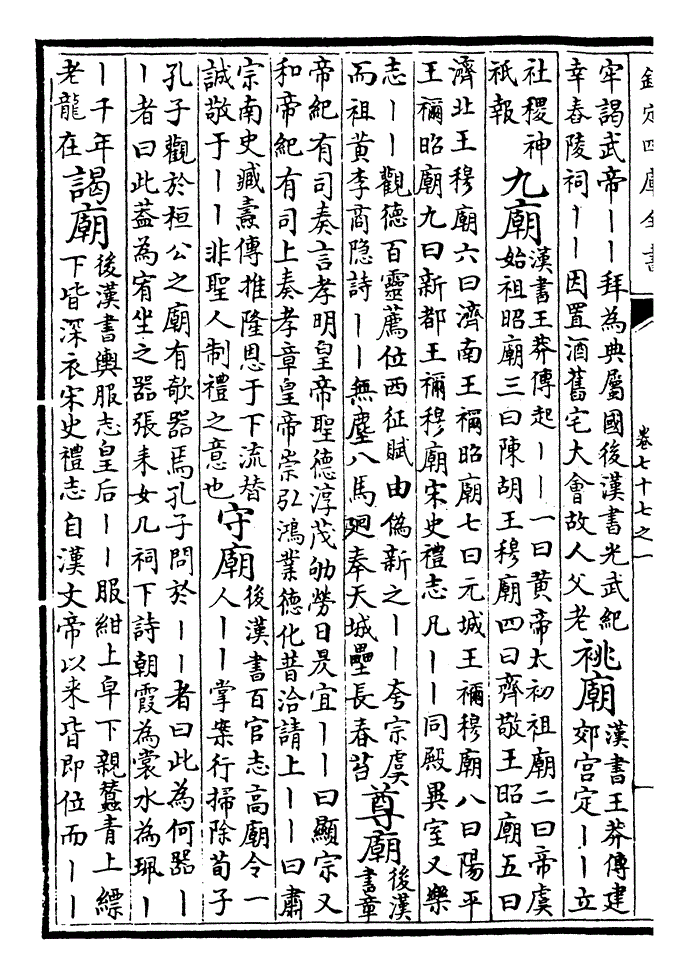 欽定四庫全書
卷七十七之一
牢謁武帝丨丨拜為典屬國後漢書光武紀
幸舂陵祠丨丨因置酒舊宅大會故人父老
祧廟
漢書王莽傳建
郊宮定丨丨立
社稷神
祇報
九廟
漢書王莽傳起丨丨一曰黃帝太初祖廟二曰帝虞
始祖昭廟三曰陳胡王穆廟四曰齊敬王昭廟五曰
濟北王穆廟六曰濟南王禰昭廟七曰元城王禰穆廟八曰陽平
王禰昭廟九曰新都王禰穆廟宋史禮志凡丨丨同殿異室又樂
志丨丨觀德百靈薦位西征賦由偽新之丨丨夸宗虞
而祖黃李商隐詩丨丨無塵八馬廻奉天城壘長春苔
尊廟
後漢
書章
帝紀有司奏言孝明皇帝聖德淳茂劬勞日昃宜丨丨曰顯宗又
和帝紀有司上奏孝章皇帝崇弘鴻業德化普洽請上丨丨曰肅
宗南史臧燾傳推隆恩于下流替
誠敬于丨丨非聖人制禮之意也
守廟
後漢書百官志高廟令一
人丨丨掌案行掃除荀子
孔子觀於桓公之廟有欹器焉孔子問於丨丨者曰此為何器丨
丨者曰此葢為宥坐之器張耒女几祠下詩朝霞為裳水為珮丨
丨千年
老龍在
謁廟
後漢書輿服志皇后丨丨服紺上皁下親蠶青上縹
下皆深衣宋史禮志自漢文帝以来皆即位而丨丨